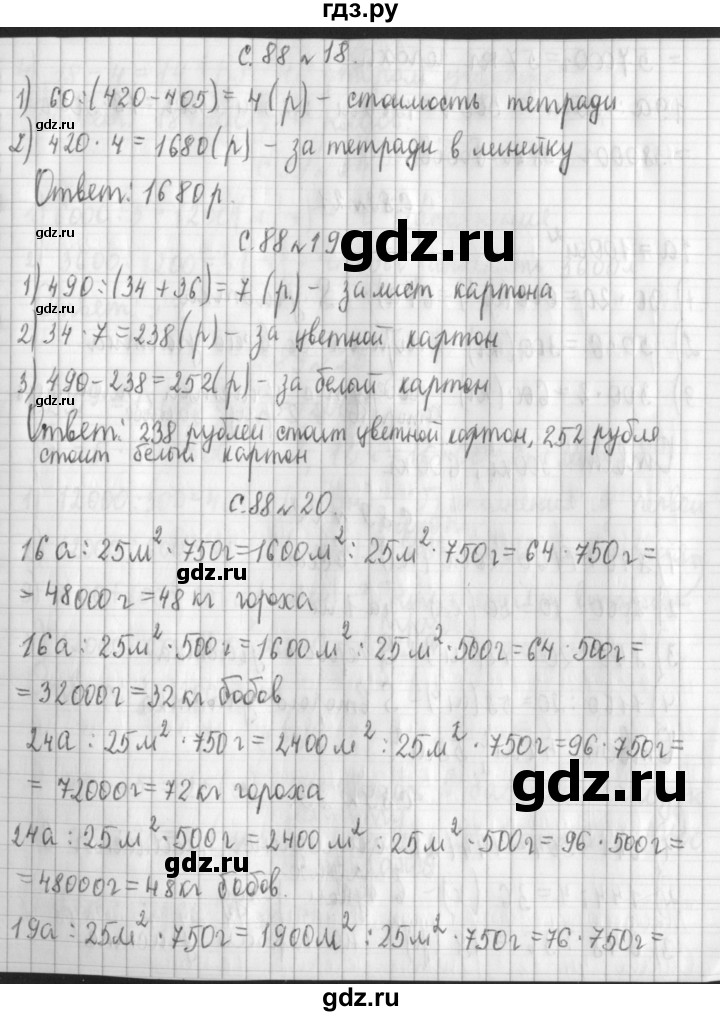 гдз.ру
С.88 №18.
1) 60:(420-405)=4(р) - стоимость тетради
gdz.ru
2) 420·4=1680(р) - за тетради в линейку
Ответ: 1680р.
gdz.ru
gdz.ru
С.88 №19
1) 490:(34+36)=7 (р.) - за лист картона
gdz.ru
2) 34·7=238(р) - за цветной картон
3) 490-238=252(р) - за белый картон
gdz.ru
Ответ: 238 рублей стоит цветной картон, 252 рубля
стоит белый картон
С.88 №20.
16а:25м²·750г=1600м²:25м²·750г=64·750г=
gdz.ru
=48000г=48кг гороха
16а:25м²·500г=1600м²:25м²·500г=64·500г=
=32000г=32кг бобов
24а:25м²·750г=2400м²:25м²·750г=96·750г=
gdz.ru
=72000г=72кг гороха
24а:25м²·500г=2400м²:25м²·500г=96·500г=
gdz.ru
=48000г=48кг бобов.
19а:25м²·750г=1900м²:25м²·750г=76·750г=
gdz.ru